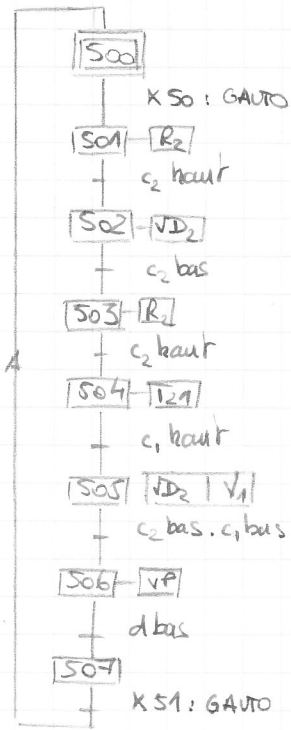 500
X50 : GAUTO
501 R2
c2 haut
502 VD2
c2 bas
503 R2
c2 haut
504 T21
c1 haut
505 VD2 V1
c2 bas . c1 bas
506 VP
d bas
507
X51 : GAUTO